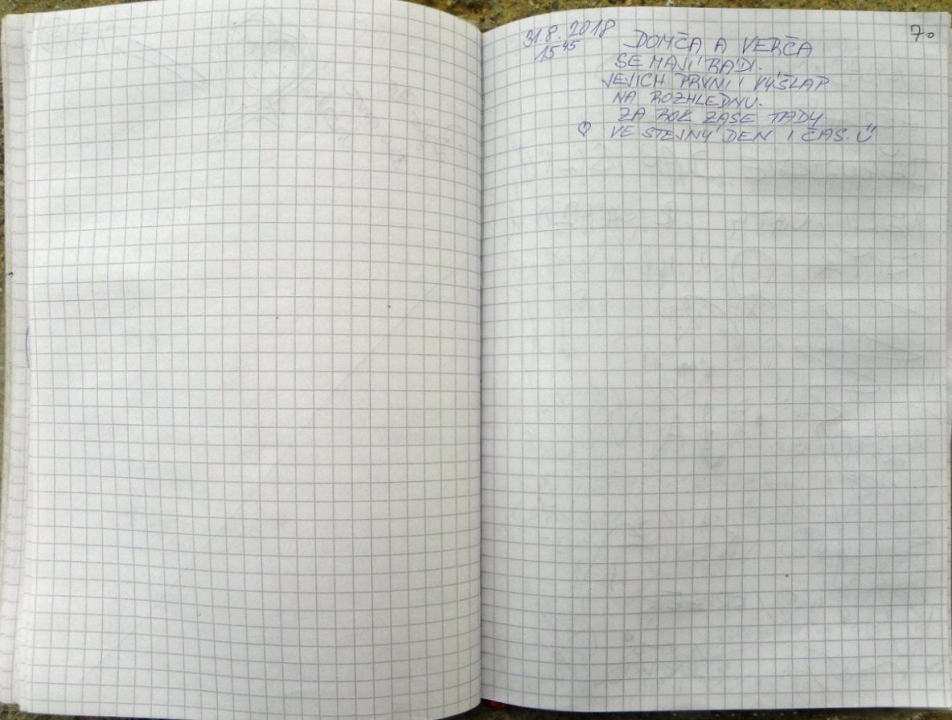 31.8.2018
15 45
70
DOMČA A VERČA
SE MAJÍ RÁDI.
JEJICH PRVNÍ VÝŠLAP
NA ROZHLEDNU.
ZA ROK ZASE TADY
VE STEJNÝ DEN I ČAS.